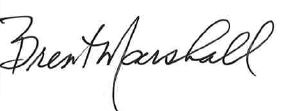 Brent Marshall